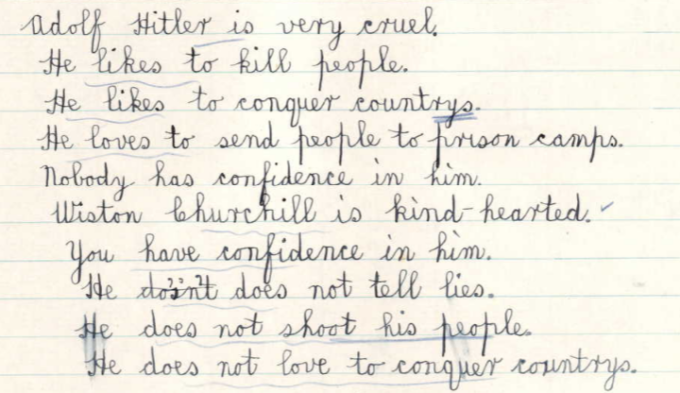 Adolf Hitler is very cruel.
He likes to kill people.
He likes to conquer countrys.
He loves to send people to prison camps.
Nobody has confidence in him.
Wiston Churchill is kind-hearted.
You have confidence in him.
He does not tell lies.
He does not shoot his people.
He does not love to conquer countrys.